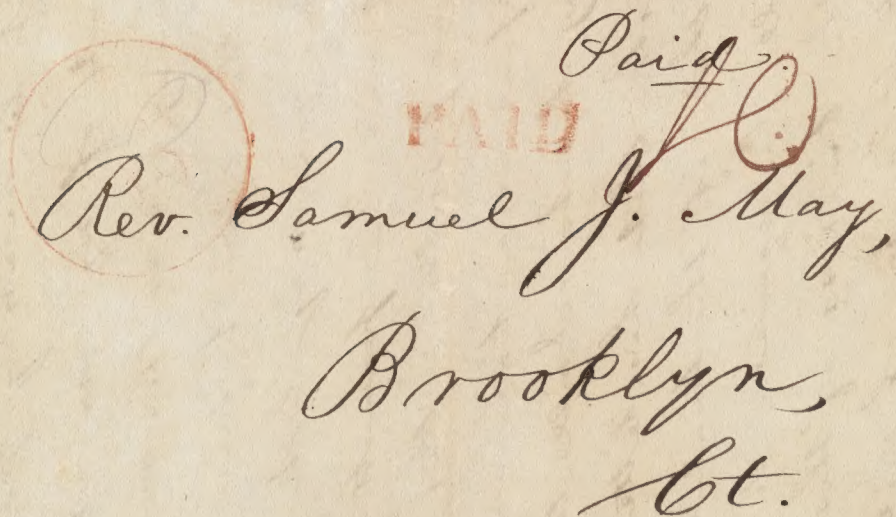 Paid.
PAID
10
Rev. Samuel J. May,
Brooklyn,
Ct.